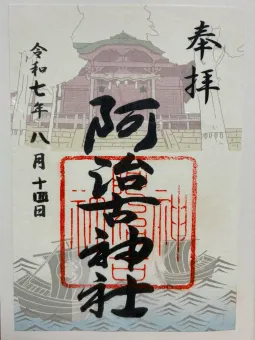 奉拝
阿治古神社
令和七年八月十四日